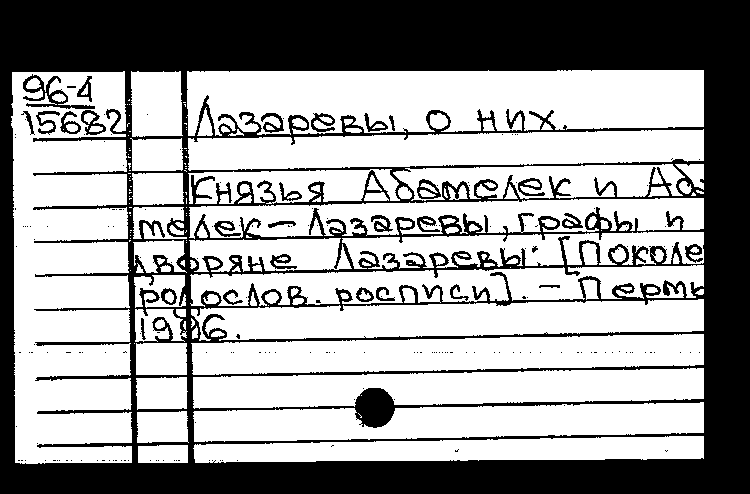 96-4
15682
Лазаревы, о них.
Князья Абамелек и Аба
мелек-Лазаревы, графы и
дворяне Лазаревы: [Поколе
родослов. росписи]. - Пермь
1996.